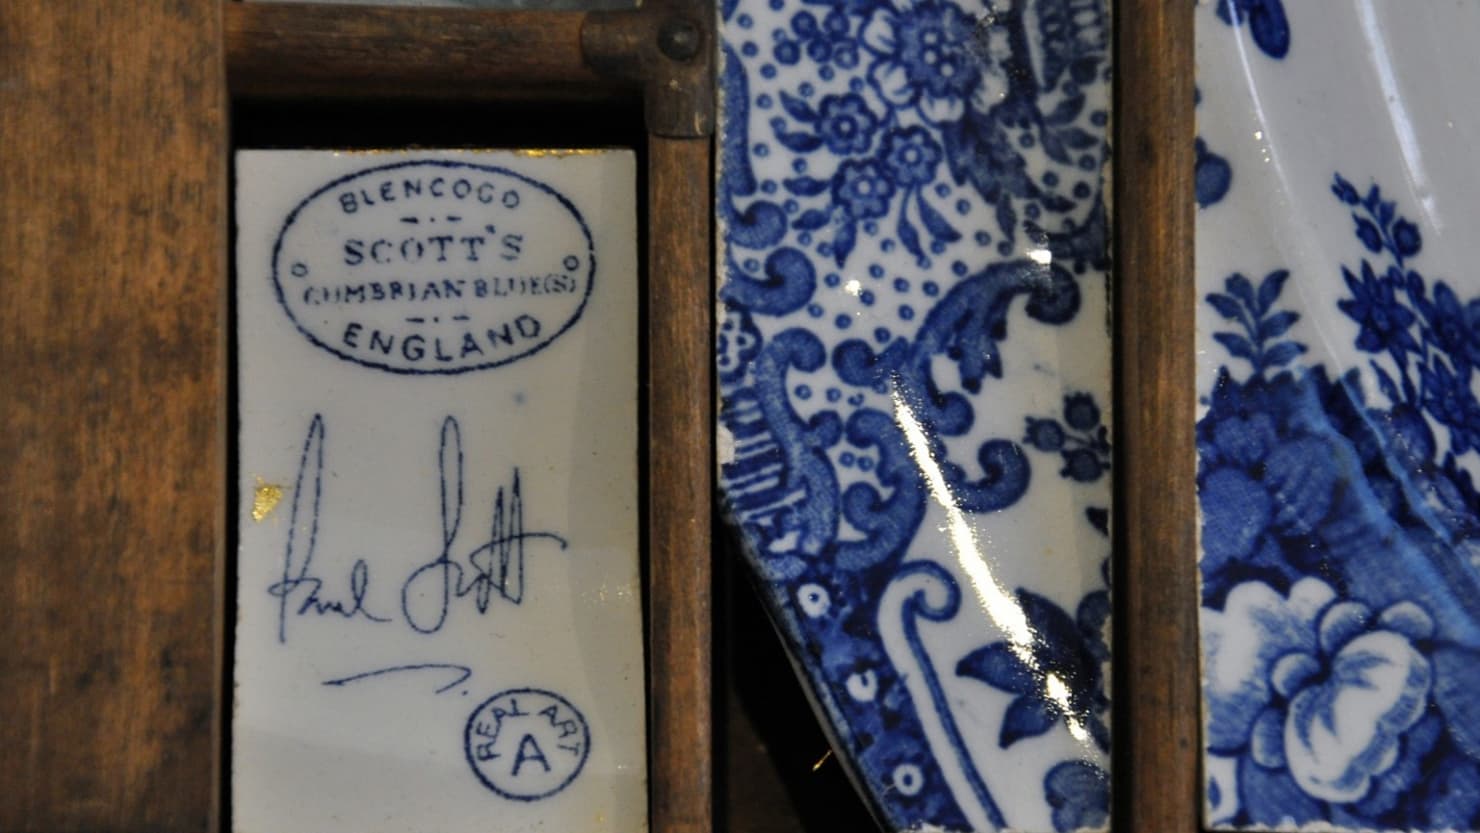 BLENCOGO
SCOTT'S
CUMBRIAN BLUE(S)
ENGLAND
Paul Scott
REAL ART
A